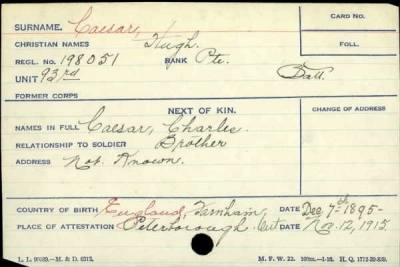 SURNAME. Caesar,
CARD NO.
CHRISTIAN NAMES Hugh.
FOLL.
REGL. NO. 198051 RANK Pte.
UNIT 93rd Batt.
FORMER CORPS
NEXT OF KIN.
CHANGE OF ADDRESS
NAMES IN FULL Caesar, Charles.
RELATIONSHIP TO SOLDIER Brother
ADDRESS Not Known.
COUNTRY OF BIRTH England, Farnham, DATE Dec 7th 1895-
PLACE OF ATTESTATION Peterborough. Ont DATE Nov. 12, 1915.
M. F. W. 22.